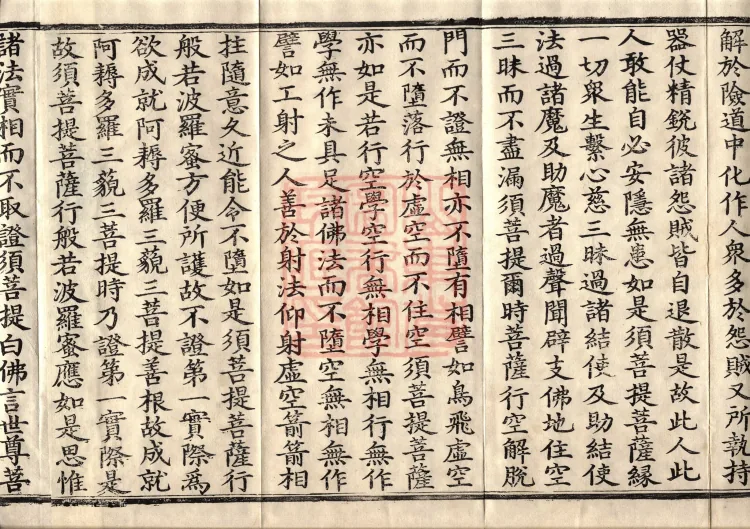 解於險道中化作人衆多於怨賊又所執持
器仗精銳彼諸怨賊皆自退散是故此人此
人敢能自必安隱無患如是須菩提菩薩緣
一切衆生繫心慈三昧過諸結使及助結使
法過諸魔及助魔者過聲聞辟支佛地住空
三昧而不盡漏須菩提爾時菩薩行空解脫
門而不證無相亦不墮有相譬如鳥飛虛空
而不墮落行於虛空而不住空須菩提菩薩
亦如是若行空學空行無相學無相行無作
學無作未具足諸佛法而不墮空無相無作
譬如工射之人善於射法仰射虛空箭箭相
拄隨意久近能令不墮如是須菩提菩薩行
般若波羅蜜方便所護故不證第一實際為
欲成就阿耨多羅三藐三菩提善根故成就
阿耨多羅三藐三菩提時乃證第一實際是
故須菩提菩薩行般若波羅蜜應如是思惟
諸法實相而不取證須菩提白佛言世尊菩